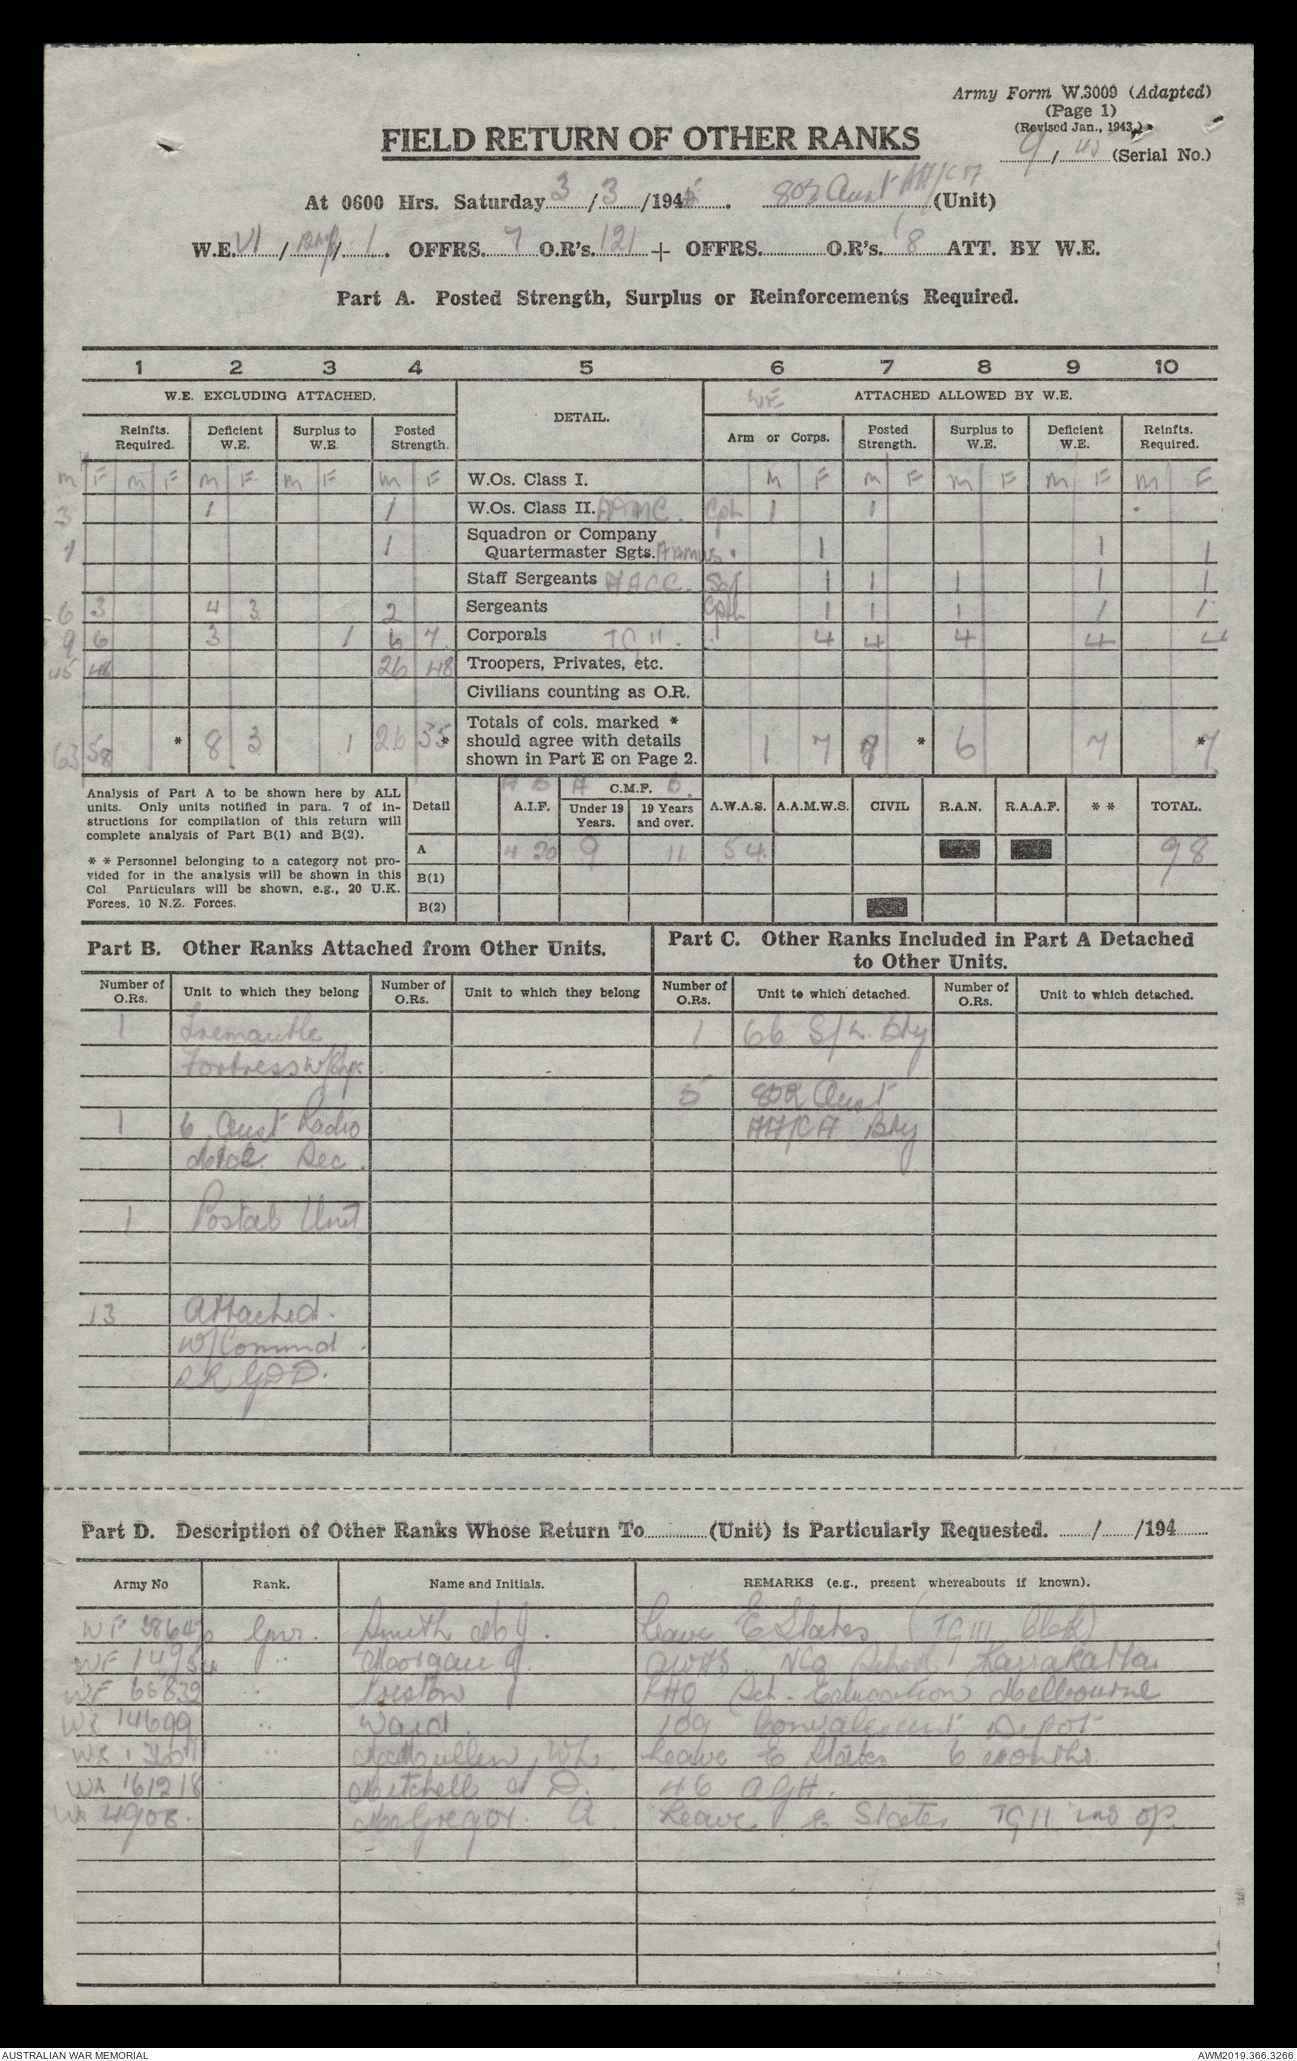 Army Form W.3009 (Adapted)
(Page 1)
(Revised Jan., 1943.)
FIELD RETURN OF OTHER RANKS
9/45 (Serial No.)
At 0600 Hrs. Saturday 3/3/1945. Aust AA/CA (Unit)
W.E. VI/ /1. OFFRS. 7 O.R's. 121 + OFFRS. O.R's. 8 ATT. BY W.E.
Part A. Posted Strength, Surplus or Reinforcements Required.
1 2 3 4 5 6 7 8 9 10
W.E. EXCLUDING ATTACHED. DETAIL. WE ATTACHED ALLOWED BY W.E.
Reinfts. Required. Deficient W.E. Surplus to W.E. Posted Strength. Arm or Corps. Posted Strength. Surplus to W.E. Deficient W.E. Reinfts. Required.
M F M F M F M F M F W.Os. Class I. M F M F M F M F M F
3 1 1 W.Os. Class II. AAMC. Cpl 1 1
1 1 Squadron or Company
Quartermaster Sgts. 1 1 1
Staff Sergeants AACC. Sgt 1 1 1 1 1
6 3 4 3 2 Sergeants Cpl 1 1 1 1 1
9 6 3 1 6 7 Corporals TG II. 4 4 4 4 4
45 48 26 48 Troopers, Privates, etc.
Civilians counting as O.R.
63 58 * 8 3 1 26 55 * Totals of cols. marked *
should agree with details
shown in Part E on Page 2. 1 7 * 6 7 * 7
Analysis of Part A to be shown here by ALL
units. Only units notified in para. 7 of in-
structions for compilation of this return will
complete analysis of Part B(1) and B(2).
* * Personnel belonging to a category not pro-
vided for in the analysis will be shown in this
Col. Particulars will be shown, e.g., 20 U.K.
Forces, 10 N.Z. Forces.
Detail A B A.I.F. A C.M.F. B. Under 19 Years. 19 Years and over. A.W.A.S. A.A.M.W.S. CIVIL R.A.N. R.A.A.F. * * TOTAL.
A 4 20 9 11 54 98
B(1)
B(2)
Part B. Other Ranks Attached from Other Units.
Part C. Other Ranks Included in Part A Detached
to Other Units.
Number of O.Rs. Unit to which they belong Number of O.Rs. Unit to which they belong Number of O.Rs. Unit to which detached. Number of O.Rs. Unit to which detached.
1 Fremantle 1 66 S/L. Bty
Fortress W/Shps.
5 802 Aust
1 6 Aust Radio AA/CA Bty
Sec.
1 Postal Unit
13 Attached.
W/Commd.
Part D. Description of Other Ranks Whose Return To (Unit) is Particularly Requested. / /194
Army No Rank. Name and Initials. REMARKS (e.g., present whereabouts if known).
WF Gnr. Smith M J. Leave E States (TG III Clerk)
WF " Morgan J. AWAS NCO School Karrakatta
WF 65832 " Preston J LHQ Sch. Education Melbourne
WX 14699 " Ward. 109 Convalescent Depot
WX " McMullen, Leave E States 6 months.
WX 161218 Mitchell D. 46 AGH.
WX 4908. McGregor. A Leave E States TG II ins op.
AUSTRALIAN WAR MEMORIAL
AWM2019.366.3266